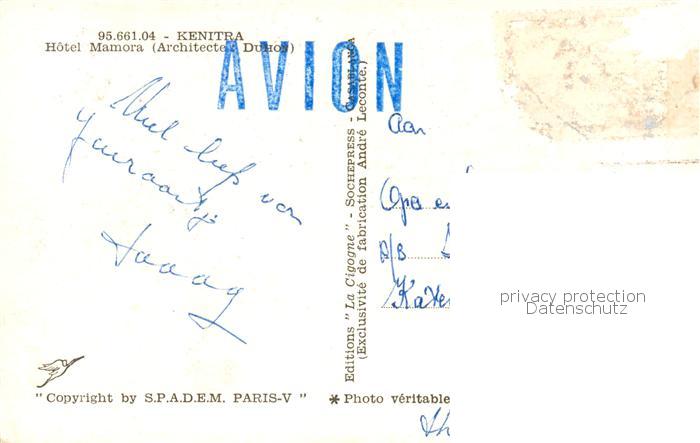 95.661.04 - KENITRA
Hôtel Mamora (Architecte: DUHON)
AVION
Veel liefs van
Aan
Opa e
A/B
Kate
Editions "La Cigogne" - SOCHEPRESS - CASABLANCA
(Exclusivité de fabrication André Leconte.)
privacy protection
Datenschutz
"Copyright by S.P.A.D.E.M. PARIS-V"
* Photo véritable